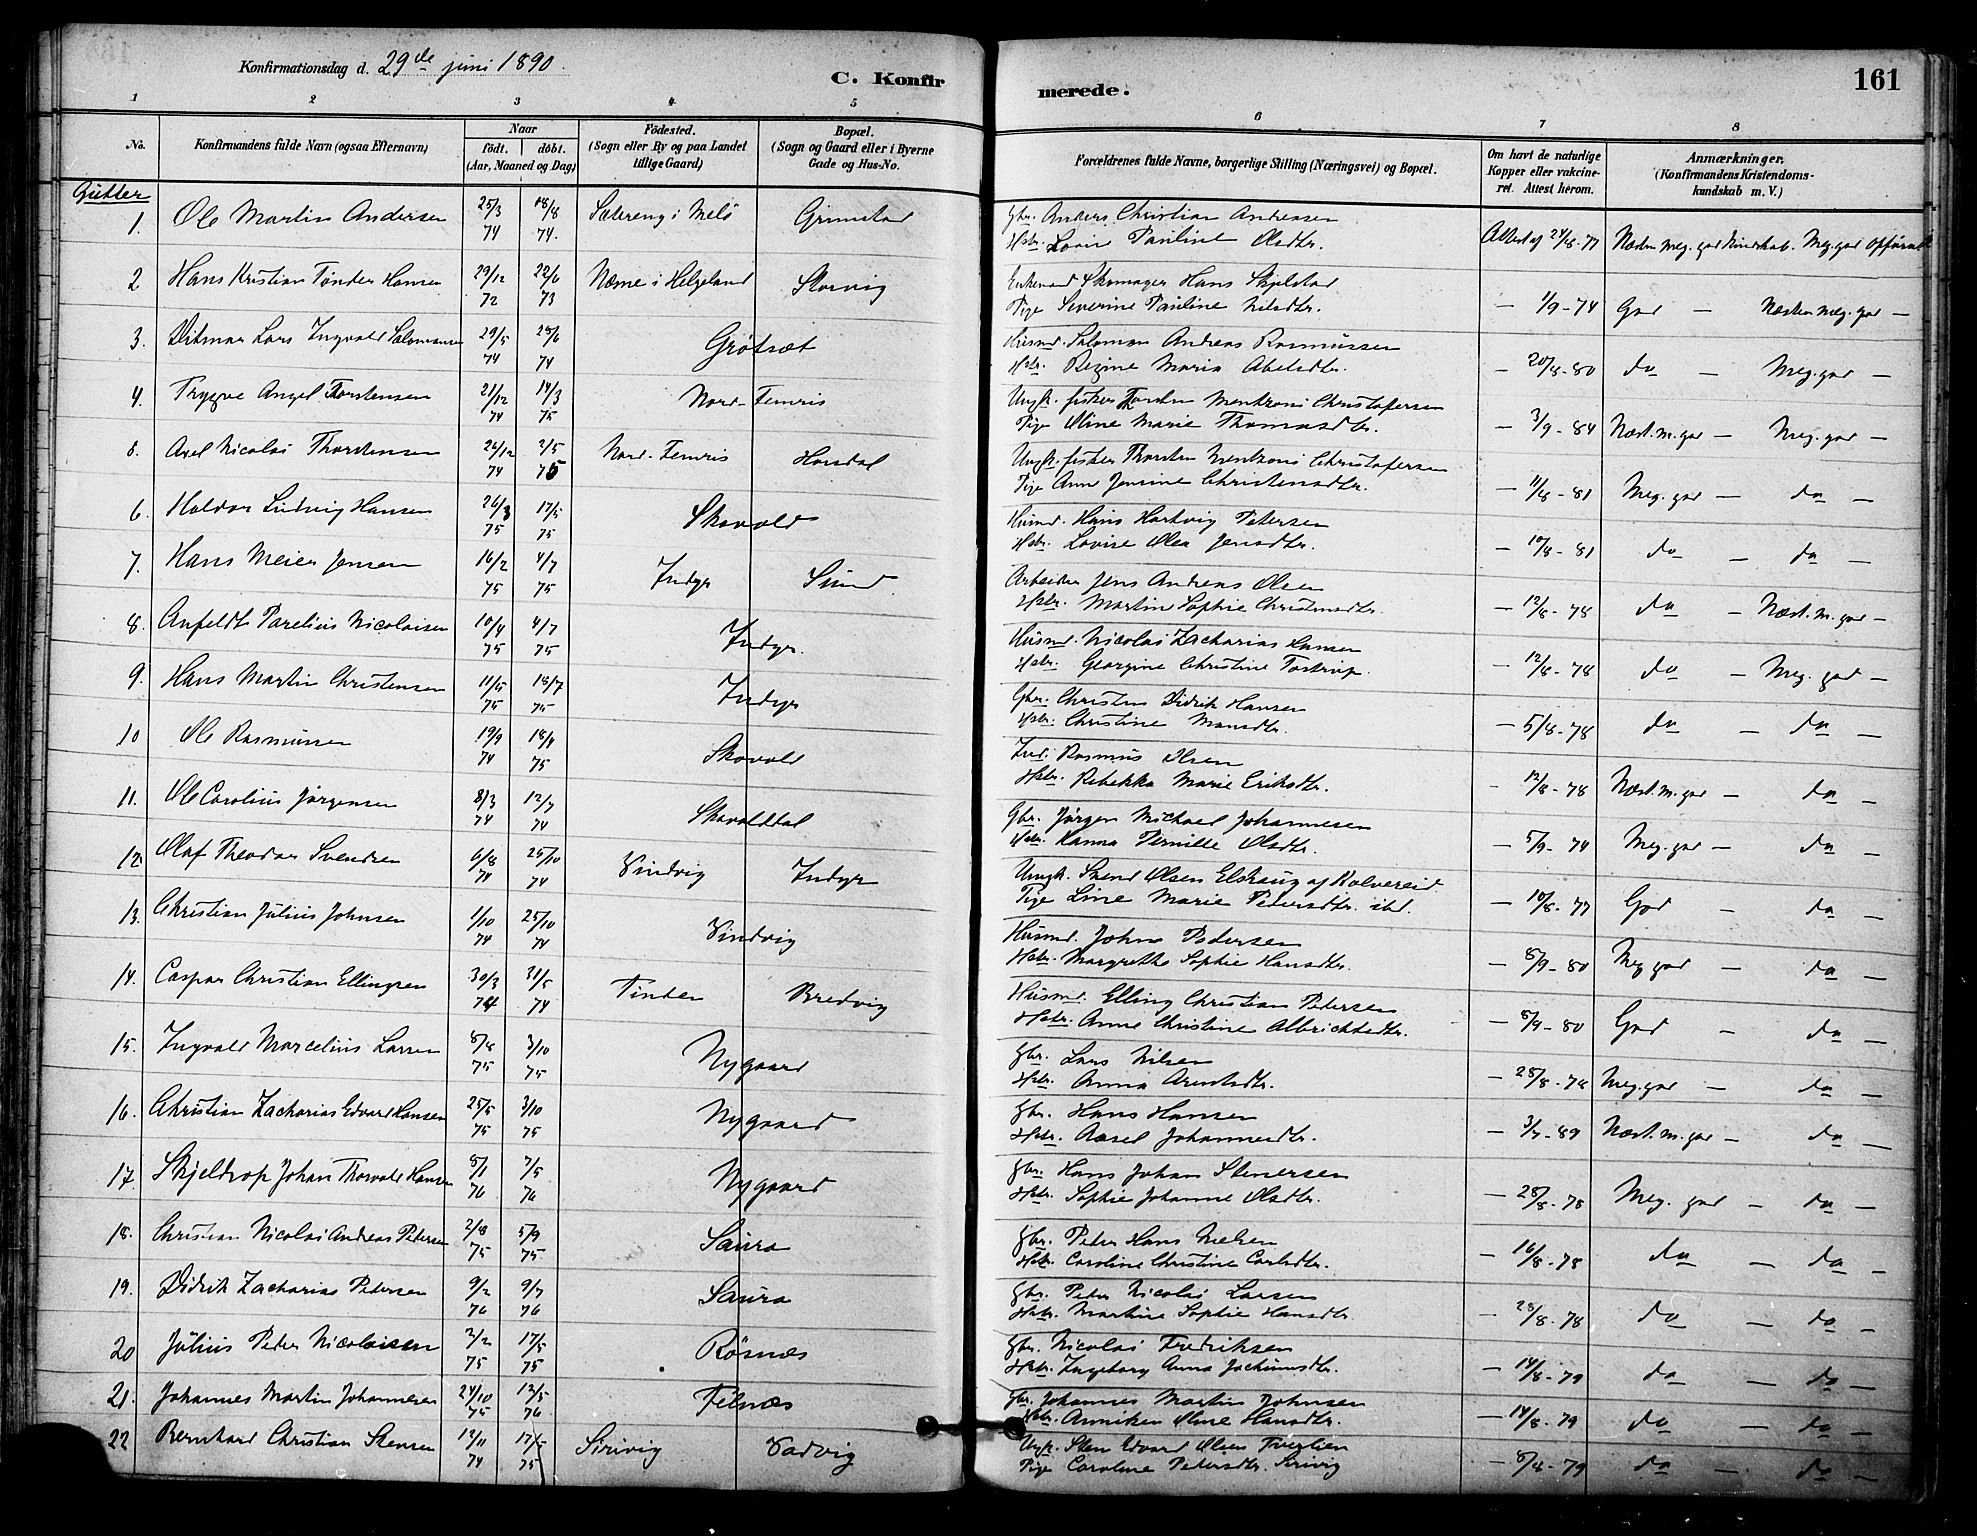 Konfirmationsdag d. 29de juni 1890.
C. Konfirmerede.
161
1 2 3 4 5 6 7 8
No.
Konfirmandens fulde Navn (ogsaa Efternavn)
Naar
født. døbt.
(Aar, Maaned og Dag)
Fødested.
(Sogn eller By og paa Landet tillige Gaard)
Bopæl.
(Sogn og Gaard eller i Byerne Gade og Hus-No.
Forældrenes fulde Navne, borgerlige Stilling (Næringsvei) og Bopæl.
Om havt de naturlige Kopper eller vakcineret. Attest herom.
Anmærkninger.
(Konfirmandens Kristendomskundskab m. V.)
Gutter
1. Ole Martin Andersen 25/3 74 18/8 74. Sætereng i Melø Grimstad Gbr. Anders Christian Andreasen Hstr. Lovise Pauline Olsdtr. Attest af 24/8-77 Næsten meg. god Kundskab. Meg. god opførsel
2 Hans Kristian Tønder Hansen 29/12 72 22/6 73 Næsne i Helgeland Storvig Enkemand Skomager Hans Skjelstad Pige Severine Pauline Nilsdtr. — 1/9-74 God — Næsten meg. god —
3. Ditmar Lars Ingvald Salomonsen 29/5 74 28/6 74 Grøtsæt Husmd. Salomon Andreas Rasmussen Hstr. Regine Maria Abelsdtr. — 20/8-80 do — Meg. god —
4. Trygve Angel Thorstensen 21/12 74 14/3 75 Nord-Femris Ungk. fisker Torsten Mentzoni Christofersen Pige Oline Marie Thomasdtr. — 3/9-84 Næst. m. god — Meg. god —
5. Axel Nicolai Thorstensen 26/12 74 2/5 75 Nord-Femris Horsdal Ungk. fisker Thorsten Mentzoni Christofersen Pige Anne Jensine Christensdtr. — 11/8-81 Meg. god — do —
6. Haldor Ludvig Hansen 26/3 75 17/5 75 Skavold Husmd. Hans Hartvig Petersen Hstr. Lovise Olea Jensdtr. — 10/8-81 do — do —
7. Hans Meier Jensen 16/2 75 4/7 75 Indyr Sund Arbeider Jens Andreas Olsen Hstr. Martine Sophie Christensdtr. — 12/8-78 do — Næst. m. god —
8. Anfeldt Parelius Nicolaisen 10/4 75 4/7 75 Indyr. Husmd. Nicolai Zacharias Hansen Hstr. Georgine Christine Tostrup. — 12/8-78 do — Meg. god —
9. Hans Martin Christensen 11/5 75 18/7 75 Indyr Gbr. Christen Didrik Hansen Hstr. Christine Monsdtr. — 5/8-78 do — do —
10 Ole Rasmussen 19/9 74 18/4 75 Skavold Ind. Rasmus Olsen Hstr. Rebekka Marie Eriksdtr. - 12/8-78 Næst. m. god — do —
11. Ole Carolius Jørgensen 8/3 74 12/7 74 Skavolddal Gbr. Jørgen Michael Johannesen Hstr. Hanna Pernille Olsdtr. — 5/9-74 Meg. god — do —
12. Olaf Theodor Svendsen 6/8 74 25/10 74 Vindvig Indyr Ungk. Svend Olsen af Kolvereid Pige Line Marie Pedersdtr. ibd. — 10/8-77 God — do —
13. Christian Julius Johnsen 1/10 74 25/10 74 Vindvig Husmd. Johns Pedersen Hstr. Margrethe Sophie Hansdtr. — 8/9-80 Meg god — do —
14. Caspar Christian Ellingsen 30/3 74 31/5 74 Tinden Bredvig Husmd. Elling Christian Petersen Hstr. Anne Christine Albrichtsdtr. — 8/9-80 God — do —
15. Ingvald Marcelius Larsen 8/8 75 3/10 75 Nygaard Gbr. Lars Nilsen Hstr. Anna Arentsdtr. — 28/8-78 Meg. god — do —
16. Christian Zacharias Edvard Hansen 25/5 75 3/10 75 Nygaard Gbr. Hans Hansen Hstr. Aasel Johannesdtr. — 3/7-89 Næst. m. god — do —
17. Skjeldrop Johan Thorvald Hansen 8/1 76 7/5 76 Nygaard Gbr. Hans Johan Stenersen Hstr. Sophie Johanne Olsdtr. — 28/8-78 Meg. god — do —
18. Christian Nicolai Andreas Petersen 2/8 75 5/9 75 Saura Gbr. Peter Hans Nielsen Hstr. Caroline Christine Carlsdtr. — 16/8-78 do — do —
19. Didrik Zacharias Petersen 9/2 76 9/7 76 Saura Gbr. Peter Nicolai Larsen Hstr. Martine Sophie Hansdtr. — 28/8-78 do — do —
20 Julius Peder Nicolaisen 2/2 75 17/5 75 Røsnes Gbr. Nicolai Fredriksen Hstr. Ingeborg Anna Jochumsdtr. — 14/8-79 do — do —
21. Johannes Martin Johannesen 24/10 75 12/5 76 Felnæs Gbr. Johannes Martin Johnsen Hstr. Anniken Oline Hansdtr. — 14/8-79 do — do —
22 Bernhard Christian Stensen 12/11 74 17/5 75 Sirivig Vadvig Ungk. Sten Edvard Olsen Tverlien Pige Caroline Petersdtr. Sirivig — 8/8-79 do — do —